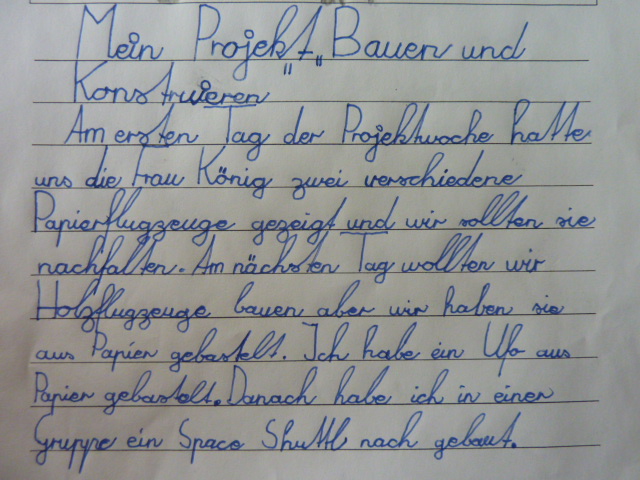 Mein Projekt "Bauen und
Konstruieren
Am ersten Tag der Projektwoche hatte
uns die Frau König zwei verschiedene
Papierflugzeuge gezeigt und wir sollten sie
nachfalten. Am nächsten Tag wollten wir
Holzflugzeuge bauen aber wir haben sie
aus Papier gebastelt. Ich habe ein Ufo aus
Papier gebastelt. Danach habe ich in einer
Gruppe ein Space Shuttl nach gebaut.